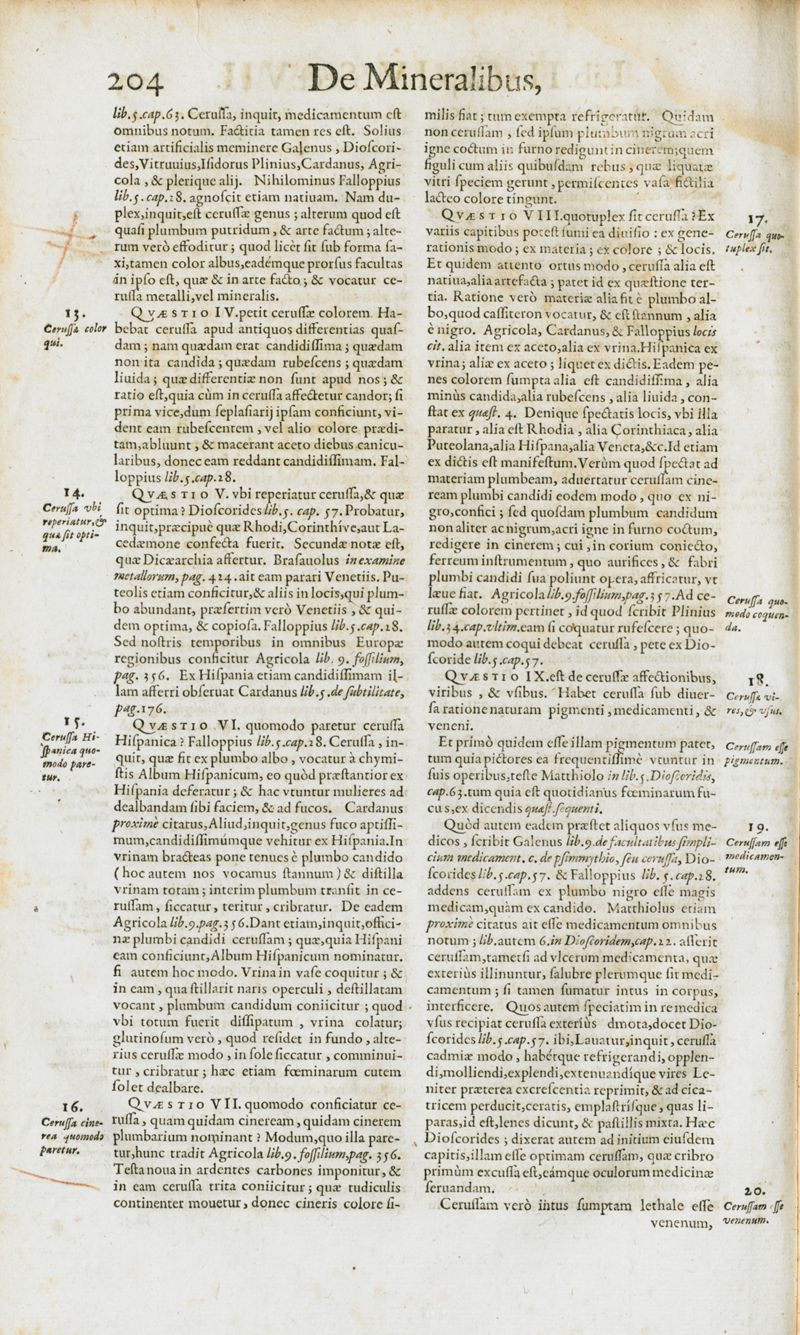 204
De Mineralibus,
lib.5.cap.63. Ceruſſa, inquit, medicamentum eſt
omnibus notum. Factitia tamen res eſt. Solius
etiam artificialis meminere Galenus , Dioſcori-
des,Vitruuius,Iſidorus Plinius,Cardanus, Agri-
cola , & plerique alij. Nihilominus Falloppius
lib.5.cap.28. agnoſcit etiam natiuam. Nam du-
plex,inquit,eſt ceruſſæ genus ; alterum quod eſt
quaſi plumbum putridum , & arte factum ; alte-
rum verò effoditur ; quod licèt ſit ſub forma ſa-
xi,tamen color albus,eadémque prorſus facultas
in ipſo eſt, quæ & in arte facto ; & vocatur ce-
ruſſa metalli,vel mineralis.
13.
Ceruſſæ color
qui.
QVÆSTIO IV.petit ceruſſæ colorem. Ha-
bebat ceruſſa apud antiquos differentias quaſ-
dam ; nam quædam erat candidiſſima ; quædam
non ita candida ; quædam rubeſcens ; quædam
liuida ; quæ differentiæ non ſunt apud nos ; &
ratio eſt,quia cùm in ceruſſa affectetur candor; ſi
prima vice,dum ſeplaſiarij ipſam conficiunt, vi-
dent eam rubeſcentem , vel alio colore prædi-
tam,abluunt , & macerant aceto diebus canicu-
laribus, donec eam reddant candidiſſimam. Fal-
loppius lib.5.cap.28.
14.
Ceruſſa vbi
reperiatur,&
quæ ſit opti-
ma.
QVÆSTIO V. vbi reperiatur ceruſſa,& quæ
ſit optima ? Dioſcorides lib.5. cap. 57.Probatur,
inquit,præcipuè quæ Rhodi,Corinthíve,aut La-
cedæmone confecta fuerit. Secundæ notæ eſt,
quæ Dicæarchia affertur. Braſauolus in examine
metallorum, pag. 424.ait eam parari Venetiis. Pu-
teolis etiam conficitur,& aliis in locis,qui plum-
bo abundant, præſertim verò Venetiis , & qui-
dem optima, & copioſa. Falloppius lib.5.cap.28.
Sed noſtris temporibus in omnibus Europæ
regionibus conficitur Agricola lib. 9. foſſilium,
pag. 356. Ex Hiſpania etiam candidiſſimam il-
lam afferri obſeruat Cardanus lib.5.de ſubtilitate,
pag.176.
15.
Ceruſſa Hi-
ſpanica quo-
modo pare-
tur.
QVÆSTIO VI. quomodo paretur ceruſſa
Hiſpanica ? Falloppius lib.5.cap.28. Ceruſſa , in-
quit, quæ fit ex plumbo albo , vocatur à chymi-
ſtis Album Hiſpanicum, eo quòd præſtantior ex
Hiſpania deferatur ; & hac vtuntur mulieres ad
dealbandam ſibi faciem, & ad fucos. Cardanus
proximè citatus,Aliud,inquit,genus fuco aptiſſi-
mum,candidiſſimúmque vehitur ex Hiſpania.In
vrinam bracteas pone tenues è plumbo candido
( hoc autem nos vocamus ſtannum ) & diſtilla
vrinam totam ; interim plumbum tranſit in ce-
ruſſam , ſiccatur , teritur , cribratur. De eadem
Agricola lib.9.pag.356.Dant etiam,inquit,offici-
næ plumbi candidi ceruſſam ; quæ,quia Hiſpani
eam conficiunt,Album Hiſpanicum nominatur.
fi autem hoc modo. Vrina in vaſe coquitur ; &
in eam , qua ſtillarit naris operculi , deſtillatam
vocant , plumbum candidum coniicitur ; quod
vbi totum fuerit diſſipatum , vrina colatur;
glutinoſum verò , quod reſidet in fundo , alte-
rius ceruſſæ modo , in ſole ſiccatur , comminui-
tur , cribratur ; hæc etiam fœminarum cutem
ſolet dealbare.
16.
Ceruſſa cine-
rea quomodo
paretur.
QVÆSTIO VII. quomodo conficiatur ce-
ruſſa , quam quidam cineream , quidam cinerem
plumbarium nominant ? Modum,quo illa pare-
tur,hunc tradit Agricola lib.9. foſſilium,pag. 356.
Teſta noua in ardentes carbones imponitur, &
in eam ceruſſa trita coniicitur ; quæ rudiculis
continenter mouetur, donec cineris colore ſi-
milis fiat ; tum exempta refrigeratur. Quidam
non ceruſſam , ſed ipſum plumbum nigrum acri
igne coctum in furno redigunt in cinerem;quem
figuli cum aliis quibuſdam rebus , quæ liquatæ
vitri ſpeciem gerunt , permiſcentes vaſa fictilia
lacteo colore tingunt.
17.
Ceruſſa quo-
tuplex ſit.
QVÆSTIO VIII.quotuplex ſit ceruſſa ? Ex
variis capitibus poteſt ſumi ea diuiſio : ex gene-
rationis modo ; ex materia ; ex colore ; & locis.
Et quidem attento ortus modo , ceruſſa alia eſt
natiua,alia artefacta ; patet id ex quæſtione ter-
tia. Ratione verò materiæ alia fit è plumbo al-
bo,quod caſſiteron vocatur, & eſt ſtannum , alia
è nigro. Agricola, Cardanus, & Falloppius locis
cit. alia item ex aceto,alia ex vrina.Hiſpanica ex
vrina; aliæ ex aceto ; liquet ex dictis.Eadem pe-
nes colorem ſumpta alia eſt candidiſſima , alia
minùs candida,alia rubeſcens , alia liuida , con-
ſtat ex quæſt. 4. Denique ſpectatis locis, vbi illa
paratur , alia eſt Rhodia , alia Corinthiaca, alia
Puteolana,alia Hiſpana,alia Veneta,&c.Id etiam
ex dictis eſt manifeſtum.Verùm quod ſpectat ad
materiam plumbeam, aduertatur ceruſſam cine-
ream plumbi candidi eodem modo , quo ex ni-
gro,confici ; ſed quoſdam plumbum candidum
non aliter ac nigrum,acri igne in furno coctum,
redigere in cinerem ; cui , in corium coniecto,
ferreum inſtrumentum , quo aurifices , & fabri
plumbi candidi ſua poliunt opera, affricatur, vt
læue fiat. Agricola lib.9.foſſilium,pag.357.Ad ce-
ruſſæ colorem pertinet , id quod ſcribit Plinius
lib.34.cap.vltim.eam ſi coquatur rufeſcere ; quo-
modo autem coqui debeat ceruſſa , pete ex Dio-
ſcoride lib.5.cap.57.
Ceruſſa quo-
modo coquen-
da.
18.
Ceruſſæ vi-
res, & vſus.
QVÆSTIO IX.eſt de ceruſſæ affectionibus,
viribus , & vſibus. Habet ceruſſa ſub diuer-
ſa ratione naturam pigmenti , medicamenti , &
veneni.
Ceruſſam eſſe
pigmentum.
Et primò quidem eſſe illam pigmentum patet,
tum quia pictores ea frequentiſſimè vtuntur in
ſuis operibus,teſte Matthiolo in lib.5.Dioſcoridis,
cap.63.tum quia eſt quotidianus fœminarum fu-
cus,ex dicendis quæſt.ſequenti.
19.
Ceruſſam eſſe
medicamen-
tum.
Quòd autem eadem præſtet aliquos vſus me-
dicos , ſcribit Galenus lib.9.de facultatibus ſimpli-
cium medicament. c. de pſimmythio, ſeu ceruſſa, Dio-
ſcorides lib.5.cap.57. & Falloppius lib. 5.cap.28.
addens ceruſſam ex plumbo nigro eſſe magis
medicam,quàm ex candido. Matthiolus etiam
proximè citatus ait eſſe medicamentum omnibus
notum ; lib.autem 6.in Dioſcoridem,cap.22. aſſerit
ceruſſam,tametſi ad vlcerum medicamenta, quæ
exteriùs illinuntur, ſalubre plerumque ſit medi-
camentum ; ſi tamen ſumatur intus in corpus,
interficere. Quos autem ſpeciatim in re medica
vſus recipiat ceruſſa exteriùs dmota,docet Dio-
ſcorides lib.5.cap.57. ibi,Lauatur,inquit , ceruſſa
cadmiæ modo , habétque refrigerandi, opplen-
di,molliendi,explendi,extenuandíque vires Le-
niter præterea excreſcentia reprimit, & ad cica-
tricem perducit,ceratis, emplaſtríſque, quas li-
paras,id eſt,lenes dicunt, & paſtillis mixta. Hæc
Dioſcorides ; dixerat autem ad initium eiuſdem
capitis,illam eſſe optimam ceruſſam, quæ cribro
primùm excuſſa eſt,eámque oculorum medicinæ
ſeruandam.
20.
Ceruſſam eſſe
venenum.
Ceruſſam verò intus ſumptam lethale eſſe
venenum,